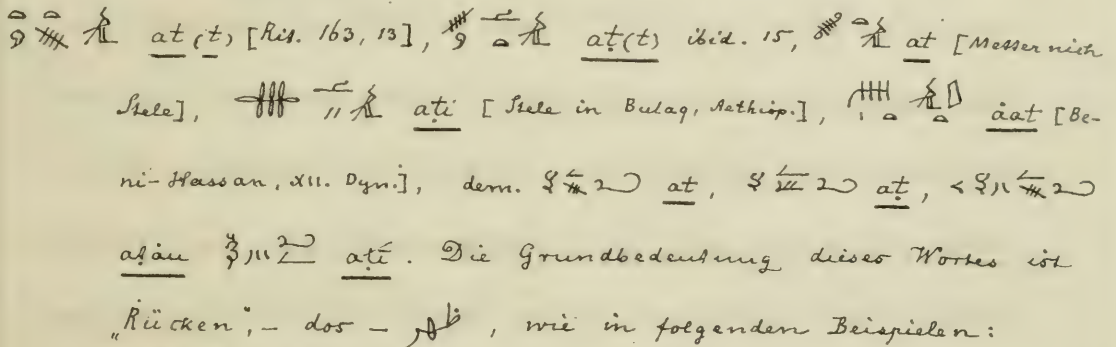 at (t) [Ris. 163, 13], aṭ(t) ibid. 15, at [Messernich
Stele], aṭi [Stele in Bulaq, Aethiop.], åat [Be-
ni-Hassan, XII. Dyn.], dem. at, aṭ,
aṭåu aṭi. Die Grundbedeutung dieses Wortes ist
„Rücken", – dos – ظهر, wie in folgenden Beispielen: